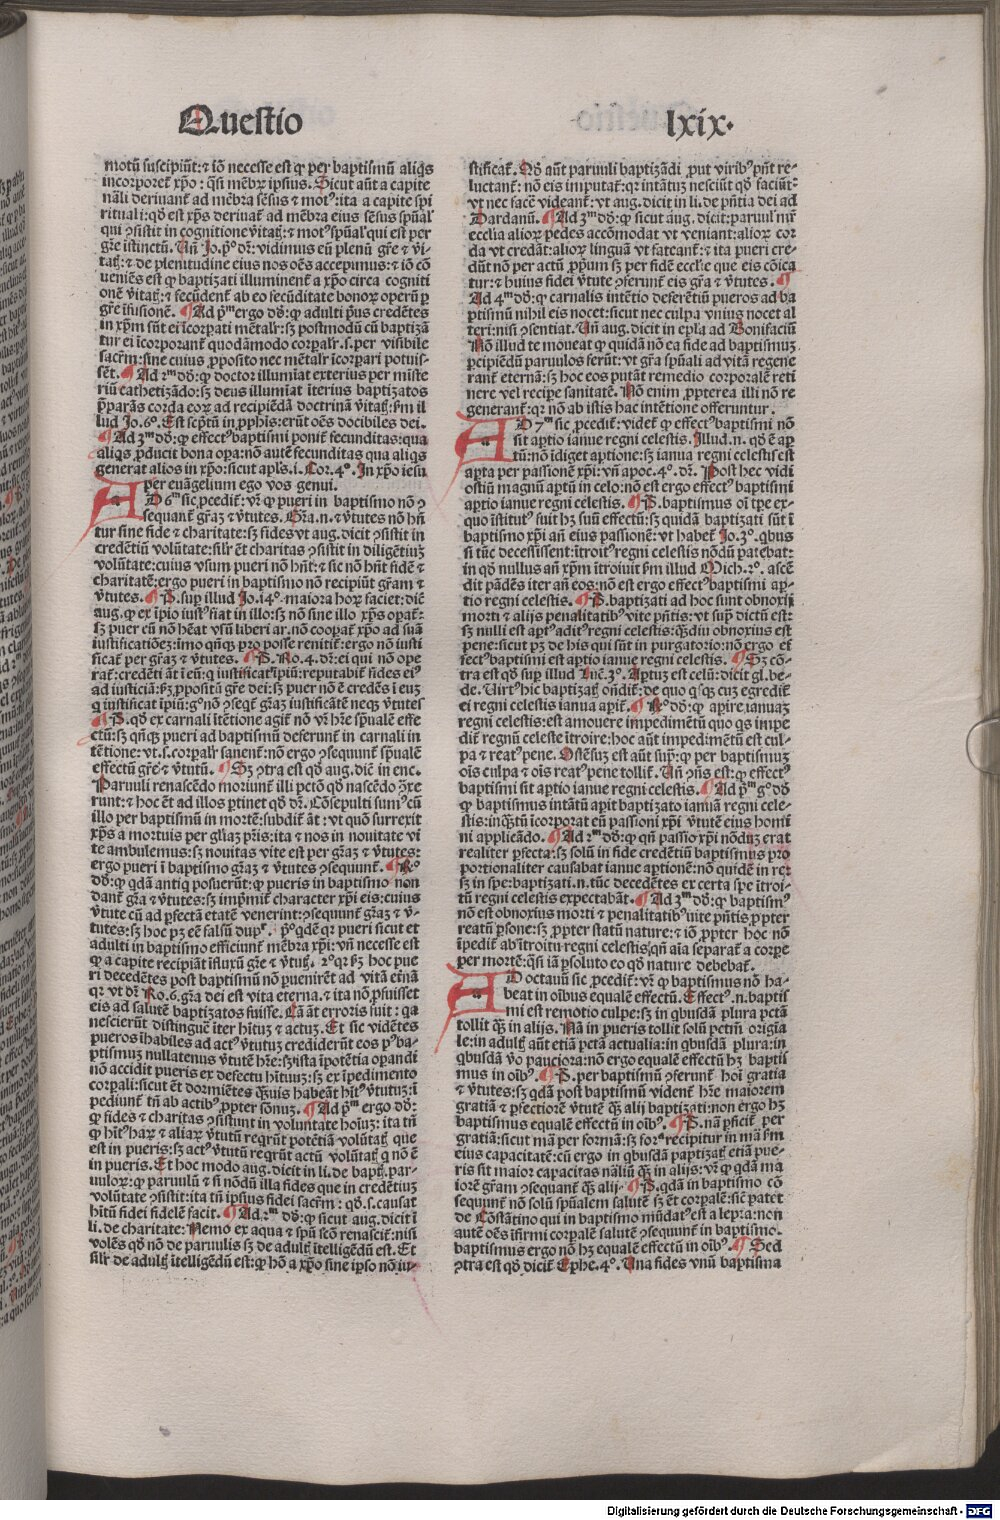 Questio
lxix.
motū suscipiūt: ⁊ iō necesse est ꝙ per baptismū aliq̄s
incorporet̄ xp̄o: q̄si mēbꝝ ipsius. Sicut aūt a capite
nāli deriuant̄ ad mēbra sēsus ⁊ motꝰ: ita a capite spi
rituali: qd̄ est xp̄s deriuat̄ ad mēbra eius sēsus sp̄ual̄
qui ꝯsistit in cognitione vitatꝭ: ⁊ motꝰ sp̄ual̄ qui est per
gr̄e istinctū. Uñ Jo. pº dr̄: vidimus eū plenū gr̄e ⁊ vi-
tatꝭ: ⁊ de plenitudine eius nos oēs accepimus: ⁊ iō cō
ueniēs est ꝙ baptizati illuminent̄ a xp̄o circa cogniti
onē vitatꝭ: ⁊ fecūdent̄ ab eo fecūditate bonoꝝ operū ꝑ
gr̄e īfusionē. ¶ Ad pᵐ ergo dō: ꝙ adulti pꝰus credētes
in xp̄m sūt ei icorpati mētalr̄: sꝫ postmodū cū baptizā
tur ei icorporant̄ quodāmodo corpalr̄ .s. per visibile
sacr̄m: sine cuius ꝓposito nec mētalr̄ icorpari potuis-
sēt. ¶ Ad 2ᵐ dō: ꝙ doctor illumiat exterius per miste
riū cathetizādo: sꝫ deus illumiat iterius baptizatos
p̄parās corda eoꝝ ad recipiēdā doctrinā vitatꝭ: sm il
lud Jo. 6º. Est sc̄ptū in ꝓphis: erūt oēs docibiles dei.
¶ Ad 3ᵐ dō: ꝙ effectꝰ baptismi ponit̄ fecunditas: qua
aliq̄s ꝓducit bona opa: nō autē fecunditas qua aliq̄s
generat alios in xp̄o: sicut apl̄s .i. Cor. 4º. In xp̄o iesu
per euāgelium ego vos genui.
AD 6ᵐ sic ꝓcedit̄: vr̄ ꝙ pueri in baptismo nō ꝯ
sequant̄ gr̄aꝫ ⁊ v̄tutes. Gr̄a .n. ⁊ v̄tutes nō hn̄
tur sine fide ⁊ charitate: sꝫ fides vt aug. dicit ꝯsistit in
credētiū volūtate: silr̄ ēt charitas ꝯsistit in diligētiuꝫ
volūtate: cuius vsum pueri nō hn̄t: ⁊ sic nō hn̄t fidē ⁊
charitatē: ergo pueri in baptismo nō recipiūt gr̄am ⁊
v̄tutes. ¶ P. sup illud Jo. 14º. maiora hoꝝ faciet: diē
aug. ꝙ ex ipio iustꝰ fiat in illo: sꝫ nō sine illo xp̄s opat̄:
sꝫ puer cū nō hēat vsū liberi ar. nō coopat̄ xp̄o ad suā
iustificatiōeꝫ: imo qn̄qꝫ pro posse renitit̄: ergo nō iusti
ficat̄ per gr̄aꝫ ⁊ v̄tutes. ¶ P. Ro. 4. dr̄: ei qui nō ope
rat̄: credēti āt i eū: q̄ iustificat ipiū: reputabit̄ fides eiꝰ
ad iusticiā: sꝫ ꝓpositū gr̄e dei: sꝫ puer nō ē credēs i euꝫ
q̄ iustificat ipiū: gº nō ꝯseqt̄ gr̄aꝫ iustificātē neqꝫ v̄tutes
¶ P. qd̄ ex carnali itētione agit̄ nō vr̄ hr̄e sp̄ualē effe
ctū: sꝫ qn̄qꝫ pueri ad baptismū deferunt̄ in carnali in
tētione: vt .s. corpalr̄ sanent̄: nō ergo ꝯsequunt̄ sp̄ualē
effectū gr̄e ⁊ v̄tutū. ¶ Sꝫ ꝯtra est qd̄ aug. diē in enc.
Paruuli renascēdo moriunt̄ illi pctō qd̄ nascēdo ꝯtraxe
runt: ⁊ hoc ēt ad illos ꝑtinet qd̄ dr̄. Cōsepulti sumꝰ cū
illo per baptismū in mortē: subdit̄ āt: vt quō surrexit
xp̄s a mortuis per gl̄iaꝫ pr̄is: ita ⁊ nos in nouitate vi
te ambulemus: sꝫ nouitas vite est per gr̄aꝫ ⁊ v̄tutes:
ergo pueri i baptismo gr̄aꝫ ⁊ v̄tutes ꝯsequunt̄. ¶ Rº
dō: ꝙ qdā antiq posuerūt: ꝙ pueris in baptismo non
dant̄ gr̄a ⁊ v̄tutes: sꝫ imp̄mit̄ character xp̄i eis: cuius
v̄tute cū ad ꝑfectā etatē venerint: ꝯsequunt̄ gr̄aꝫ ⁊ v̄-
tutes: sꝫ hoc pꝫ eē falsū dupl̄r. pº qdē qꝛ pueri sicut ⁊
adulti in baptismo efficiunt̄ mēbra xp̄i: vñ necesse est
ꝙ a capite recipiāt ifluxū gr̄e ⁊ v̄tutꝭ. 2º qꝛ sꝫ hoc pue
ri decedētes post baptismū nō puenirēt ad vitā etn̄ā
qꝛ vt dr̄ Ro. 6. gr̄a dei est vita eterna. ⁊ ita nō ꝓfuisset
eis ad salutē baptizatos fuisse. Cā āt erroris fuit: qa
nescierūt distinguē iter hituꝫ ⁊ actuꝫ. Et sic vidētes
pueros ihabiles ad actꝰ v̄tutuꝫ crediderūt eos pꝰ ba-
ptismuꝫ nullatenus v̄tutē hr̄e: sꝫ ista ipotētia opandi
nō accidit pueris ex defectu hituuꝫ: sꝫ ex ipedimento
corpali: sicut ēt dormiētes q̄uis habeāt hitꝰ v̄tutuꝫ: i
pediunt̄ tn̄ ab actibꝰ ꝓpter sōnuꝫ. ¶ Ad pᵐ ergo dō:
ꝙ fides ⁊ charitas ꝯsistunt in voluntate hoiuꝫ: ita tn̄
ꝙ hitꝰ haꝝ ⁊ aliaꝝ v̄tutū reqrūt potētiā volūtatꝭ que
est in pueris: sꝫ actꝰ v̄tutū reqrūt actū volūtatꝭ q̄ nō ē
in pueris. Et hoc modo aug. dicit in li. de bapt. par-
uuloꝝ: ꝙ paruulū ⁊ si nōdū illa fides que in credētiuꝫ
volūtate ꝯsistit: ita tn̄ ipsius fidei sacr̄m: qd̄ .s. causat
hitū fidei fidelē facit. ¶ Ad 2ᵐ dō: ꝙ sicut aug. dicit i
li. de charitate: Nemo ex aqua ⁊ spū scō renascit̄: nisi
volēs qd̄ nō de paruulis sꝫ de adultꝭ itelligēdū est. Et
silr̄ de adultꝭ itelligēdū est: ꝙ hō a xp̄o sine ipso nō iu-
stificat̄. Qd̄ aūt paruuli baptizādi ꝓut viribꝰ pn̄t re-
luctant̄: nō eis imputat̄: qꝛ intātuꝫ nesciūt qd̄ faciūt:
vt nec facē videant̄: vt aug. dicit in li. de pn̄tia dei ad
Dardanū. ¶ Ad 3ᵐ dō: ꝙ sicut aug. dicit: paruul' mr̄
ecclīa alioꝝ pedes accōmodat vt veniant: alioꝝ cor
da vt credāt: alioꝝ linguā vt fateant̄: ⁊ ita pueri cre-
dūt nō per actū ꝓpriuꝫ sꝫ per fidē ecclie que eis cōica
tur: ⁊ huius fidei v̄tute ꝯferunt̄ eis gr̄a ⁊ v̄tutes. ¶
Ad 4ᵐ dō: ꝙ carnalis intētio deferētiū pueros ad ba
ptismū nihil eis nocet: sicut nec culpa vnius nocet al
teri: nisi ꝯsentiat. Uñ aug. dicit in epl̄a ad Bonifaciū
Nō illud te moueat ꝙ quidā nō ea fide ad baptismuꝫ
ꝑcipiēdū paruulos ferūt: vt gr̄a sp̄uali ad vitā regene
rant̄ eternā: sꝫ hoc eos putāt remedio corporalē reti
nere vel recipe sanitatē. Nō enim ꝓpterea illi nō re
generant̄: qꝛ nō ab istis hac intētione offeruntur.
AD 7ᵐ sic ꝓcedit̄: videt̄ ꝙ effectꝰ baptismi nō
sit aptio ianue regni celestis. Illud .n. qd̄ ē ap
tū: nō idiget aptione: sꝫ ianua regni celestis est
apta per passionē xp̄i: vñ apoc. 4º. dr̄. Post hec vidi
ostiū magnū aptū in celo: nō est ergo effectꝰ baptismi
aptio ianue regni celestis. ¶ P. baptismus oi tpe ex-
quo istitutꝰ fuit hꝫ suū effectū: sꝫ quidā baptizati sūt i
baptismo xp̄i añ eius passionē: vt habet̄ Jo. 3º. qbus
si tūc decessissent: itroitꝰ regni celestis nōdū patebat:
in qd̄ nullus añ xp̄m itroiuit sm illud Mich. 2º. ascē
dit pādēs iter añ eos: nō est ergo effectꝰ baptismi ap-
tio regni celestis. ¶ P. baptizati ad hoc sunt obnoxij
morti ⁊ alijs penalitatibꝰ vite pn̄tis: vt supra dictū est:
sꝫ nulli est aptꝰ aditꝰ regni celestis: q̄diu obnoxius est
pene: sicut pꝫ de his qui sūt in purgatorio: nō ergo ef
fectꝰ baptismi est aptio ianue regni celestis. ¶ Sꝫ cō-
tra est qd̄ sup illud Luc̄. 3º. Aptuꝫ est celū: dicit gl. be-
de. Uirtꝰ hic baptizatꝭ on̄dit̄: de quo q̄squꝫ egredit̄
ei regni celestis ianua apit̄. ¶ Rº dō: ꝙ apire ianuaꝫ
regni celestis: est amouere impedimētū quo qs impe
dit̄ regnū celeste itroire: hoc aūt impedimētū est cul-
pa ⁊ reatꝰ pene. Ostēsuꝫ est aūt sup̄: ꝙ per baptismuꝫ
oīs culpa ⁊ oīs reatꝰ pene tollit̄. Uñ ꝯn̄s est: ꝙ effectꝰ
baptismi sit aptio ianue regni celestis. ¶ Ad pᵐ gº dō
ꝙ baptismus intātū apit baptizato ianuā regni cele-
stis: inq̄tū icorporat eū passioni xp̄i v̄tutē eius homi
ni applicādo. ¶ Ad 2ᵐ dō: ꝙ qn̄ passio xp̄i nōduꝫ erat
realiter ꝑfecta: sꝫ solū in fide credētiū baptismus pro
portionaliter causabat ianue aptionē: nō quidē in re:
sꝫ in spe: baptizati .n. tūc decedētes ex certa spe itroi-
tū regni celestis expectabāt. ¶ Ad 3ᵐ dō: ꝙ baptismꝰ
nō est obnoxius morti ⁊ penalitatibꝰ vite pn̄tis ꝓpter
reatū ꝑsone: sꝫ ꝓpter statū nature: ⁊ iō ꝓpter hoc nō
ipedit̄ ab itroitu regni celestis: qn̄ aīa separat̄ a corpe
per mortē: q̄si iā ꝑsoluto eo qd̄ nature debebat̄.
AD octauū sic ꝓcedit̄: vr̄ ꝙ baptismus nō ha-
beat in oibus equalē effectū. Effectꝰ .n. baptis
mi est remotio culpe: sꝫ in qbusdā plura pctā
tollit q̄ in alijs. Nā in pueris tollit solū pctm̄ origia
le: in adultꝭ aūt etiā pctā actualia: in qbusdā plura: in
qbusdā vō pauciora: nō ergo equalē effectū hꝫ baptis
mus in oībꝰ. ¶ P. per baptismū ꝯferunt̄ hoi gratia
⁊ v̄tutes: sꝫ qdā post baptismū vident̄ hr̄e maiorem
gratiā ⁊ ꝑfectiorē v̄tutē q̄ alij baptizati: non ergo hꝫ
baptismus equalē effectū in oībꝰ. ¶ P. nā ꝑficit̄ per
gratiā: sicut mā per formā: sꝫ forᵃ recipitur in mā sm
eius capacitatē: cū ergo in qbusdā paptizatꝭ etiā pue-
ris sit maior capacitas nāliū q̄ in alijs: vr̄ ꝙ qdā ma
iorē gr̄am ꝯsequant̄ q̄ alij. ¶ P. qdā in baptismo cō
sequunt̄ nō solū sp̄ualem salutē sꝫ ēt corpalē: sic patet
de Cōstātino qui in baptismo mūdatꝰ est a lepra: non
autē oēs ifirmi corpalē salutē ꝯsequunt̄ in baptismo.
baptismus ergo nō hꝫ equalē effectū in oībꝰ. ¶ Sed
ꝯtra est qd̄ dicit̄ Ephe. 4º. Una fides vnū baptisma
Digitalisierung gefördert durch die Deutsche Forschungsgemeinschaft - DFG